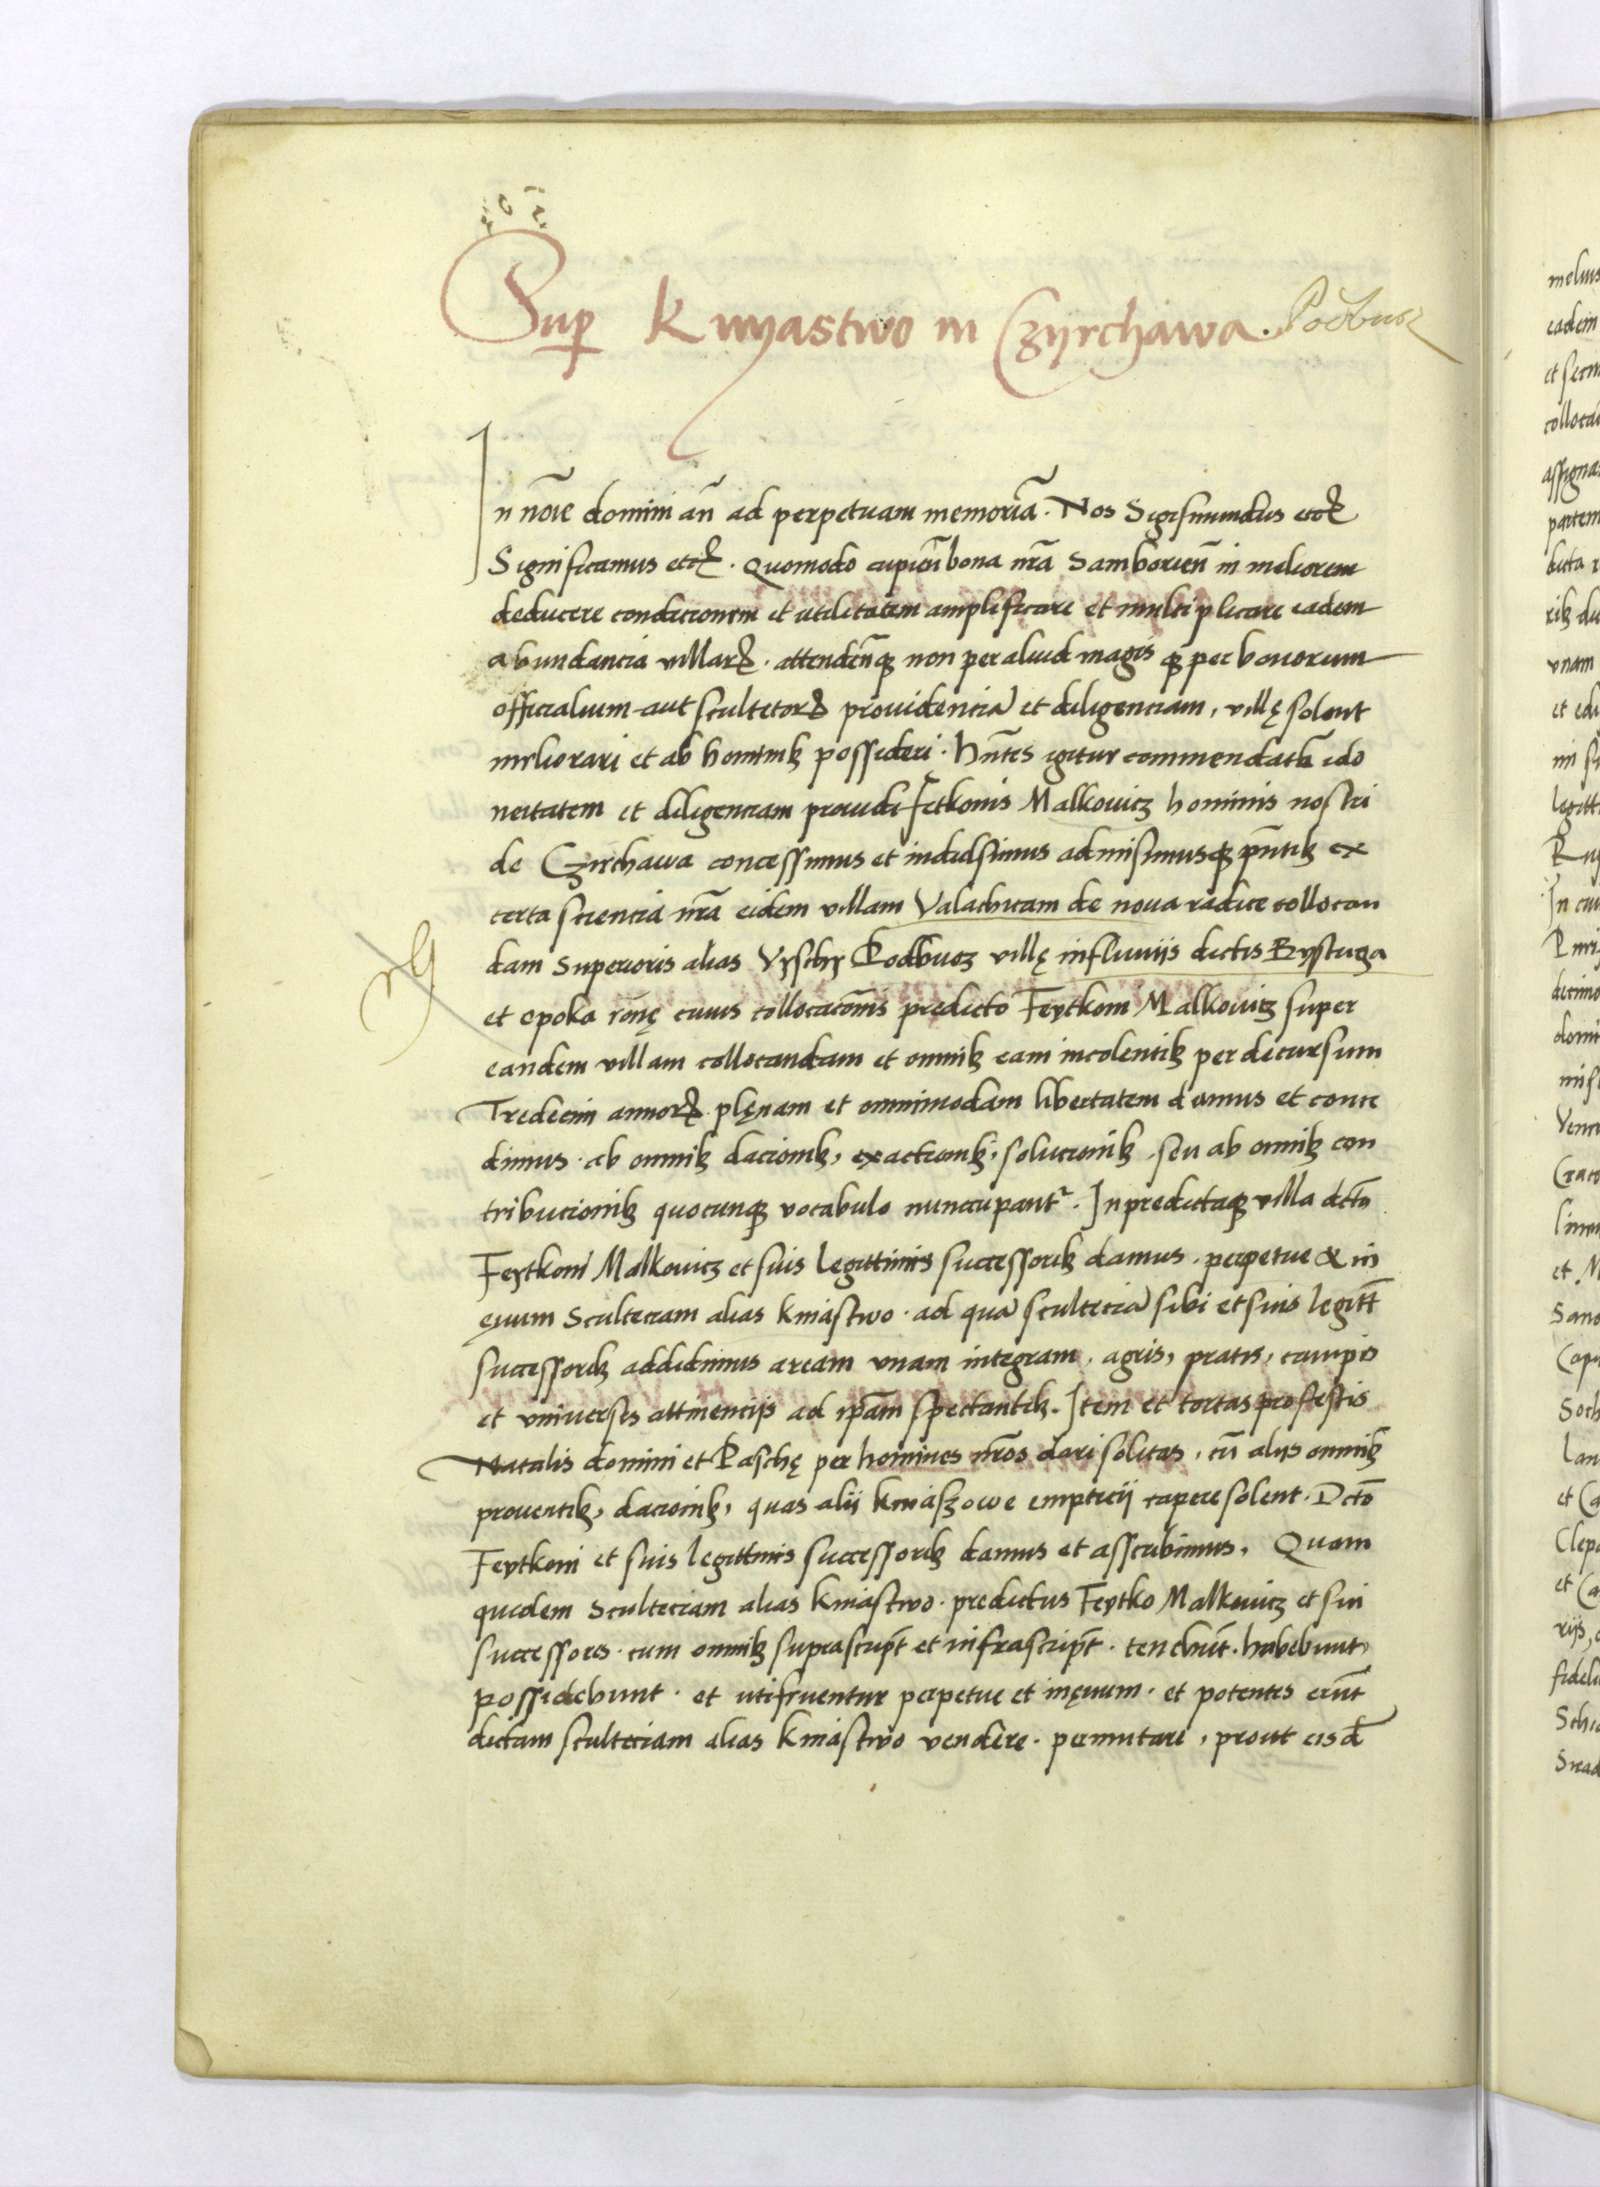 Sup Knyastwo in Czyrchawa. Podbusz
In nōīe domini añ ad perpetuam memoriā. Nos Sigismundus etcꝫ
Significamus etcꝫ. Quomodo cupieñ bona nrā Samborieñ in meliorem
deducere condicionem et utilitatem amplificare et multiplicare eadem
abundancia villarꝫ. attendeñqꝫ non per aliud magis qꝫ per bonorum
officialium aut scultetorꝫ prouidenciā et diligenciam, villę solent
meliorari et ab hominibꝫ possideri. Hñtes igitur commendatā ido
neitatem et diligenciam prouidi Fetkonis Malkouicz hominis nostri
de Czirchawa concessimus et indulsimus admisimusqꝫ pñtibꝫ ex
certa sciencia nrā eidem villam Valachicam de noua radice collocan
dam Superioris alias Vyschy Podbusz villę in fluuiis dictis Bystrzyca
et Opoka rōnę cuius collocacōnis predicto Feytkoni Malkouicz super
eandem villam collocandam et omnibꝫ eam incolentibꝫ per decursum
Tredecim annorꝫ plęnam et omnimodam libertatem damus et conce
dimus. ab omnibꝫ dacionibꝫ, exactionibꝫ, solucionibꝫ seu ab omnibꝫ con
tribucionibꝫ quocunqꝫ vocabulo nuncupantr. In predictaqꝫ villa dcto
Feytkoni Malkouicz et suis legittimis successoribꝫ damus. perpetue & in
ęuum Sculteciam alias kniastwo. ad quā sculteciā sibi et suis legitt̄
successoribꝫ addidimus aream vnam integram, agris, pratis, campis
et vniuersis attinencijs ad ip̄am spectantibꝫ. Item et tortas pro festis
Natalis domini et Paschę per homines nrōs dari solitas, cū aliis omnibꝫ
prouentibꝫ, dacionibꝫ, quas alii kniaszowe empticii capere solent. Dcto
Feytkoni et suis legittimis successoribꝫ damus et asscribimus. Quam
quidem Sculteciam alias Kniastwo. predictus Feytko Malkouicz et sui
successores. cum omnibꝫ suprascript̄ et infrascript̄. tenebūt. habebunt,
possidebunt. et utifruentur perpetue et in ęuum. et potentes erūt
dictam sculteciam alias kniastwo vendere. permutare, prout eisd̄